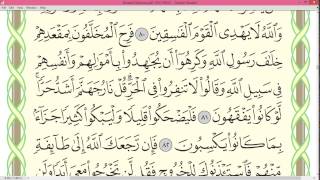 وَٱللَّهُ لَا يَهْدِى ٱلْقَوْمَ ٱلْفَـٰسِقِينَ ٨٠ فَرِحَ ٱلْمُخَلَّفُونَ بِمَقْعَدِهِمْ
خِلَـٰفَ رَسُولِ ٱللَّهِ وَكَرِهُوٓا۟ أَن يُجَـٰهِدُوا۟ بِأَمْوَٰلِهِمْ وَأَنفُسِهِمْ
فِى سَبِيلِ ٱللَّهِ وَقَالُوا۟ لَا تَنفِرُوا۟ فِى ٱلْحَرِّ قُلْ نَارُ جَهَنَّمَ أَشَدُّ حَرًّا
لَّوْ كَانُوا۟ يَفْقَهُونَ ٨١ فَلْيَضْحَكُوا۟ قَلِيلًا وَلْيَبْكُوا۟ كَثِيرًا جَزَآءًۢ
بِمَا كَانُوا۟ يَكْسِبُونَ ٨٢ فَإِن رَّجَعَكَ ٱللَّهُ إِلَىٰ طَآئِفَةٍ
مِّنْهُمْ فَٱسْتَـْٔذَنُوكَ لِلْخُرُوجِ فَقُل لَّن تَخْرُجُوا۟ مَعِىَ أَبَدًا وَلَن